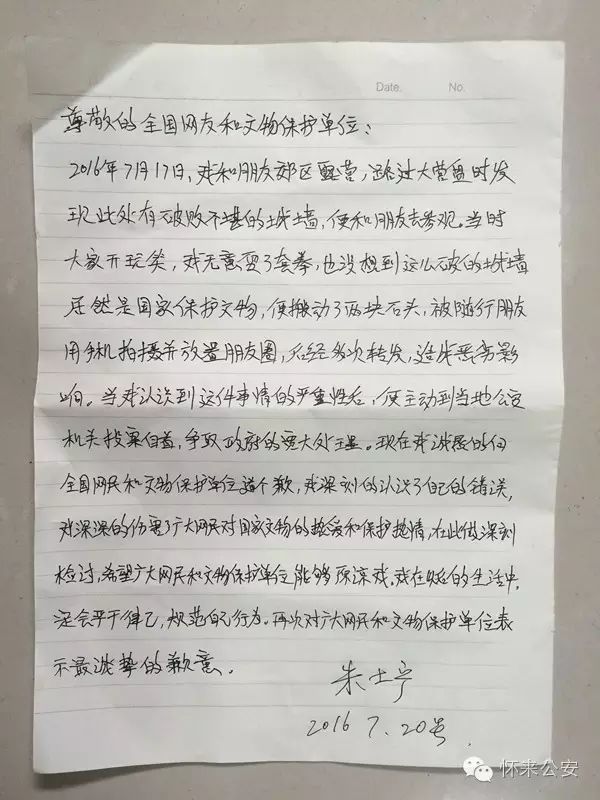 Date.          No.
尊敬的全国网友和文物保护单位:
2016年7月17日,我和朋友郊区露营,路过大营盘时发
现此处有破败不堪的城墙,便和朋友去参观。当时
大家开玩笑,我无意耍了套拳,也没想到这么破的城墙
居然是国家保护文物,便搬动了两块石头,被随行朋友
用手机拍摄并放置朋友圈,后经多次转发,造成恶劣影
响。当我认识到这件事情的严重性后,便主动到当地公安
机关投案自首,争取政府的宽大处理。现在我诚恳的向
全国网民和文物保护单位道个歉,我深刻的认识了自己的错误,
我深深的伤害了广大网民对国家文物的热爱和保护热情,在此做深刻
检讨,希望广大网民和文物保护单位能够原谅我。我在以后的生活中,
定会严于律己,规范自己行为。再次对广大网民和文物保护单位表
示最诚挚的歉意。
朱士宁
2016 7.20号.
怀来公安